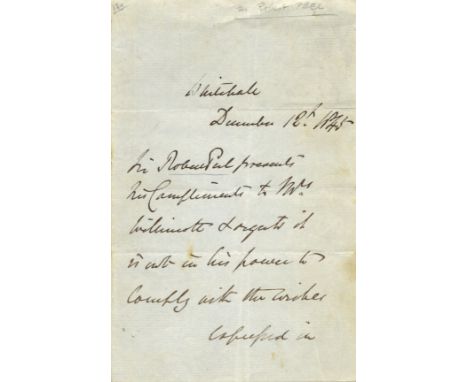 Whitehall
December 12th 1845
Sir Robert Peel presents
his Compliments to Mrs
& regrets it
is not in his power to
comply with the wishes
expressed in